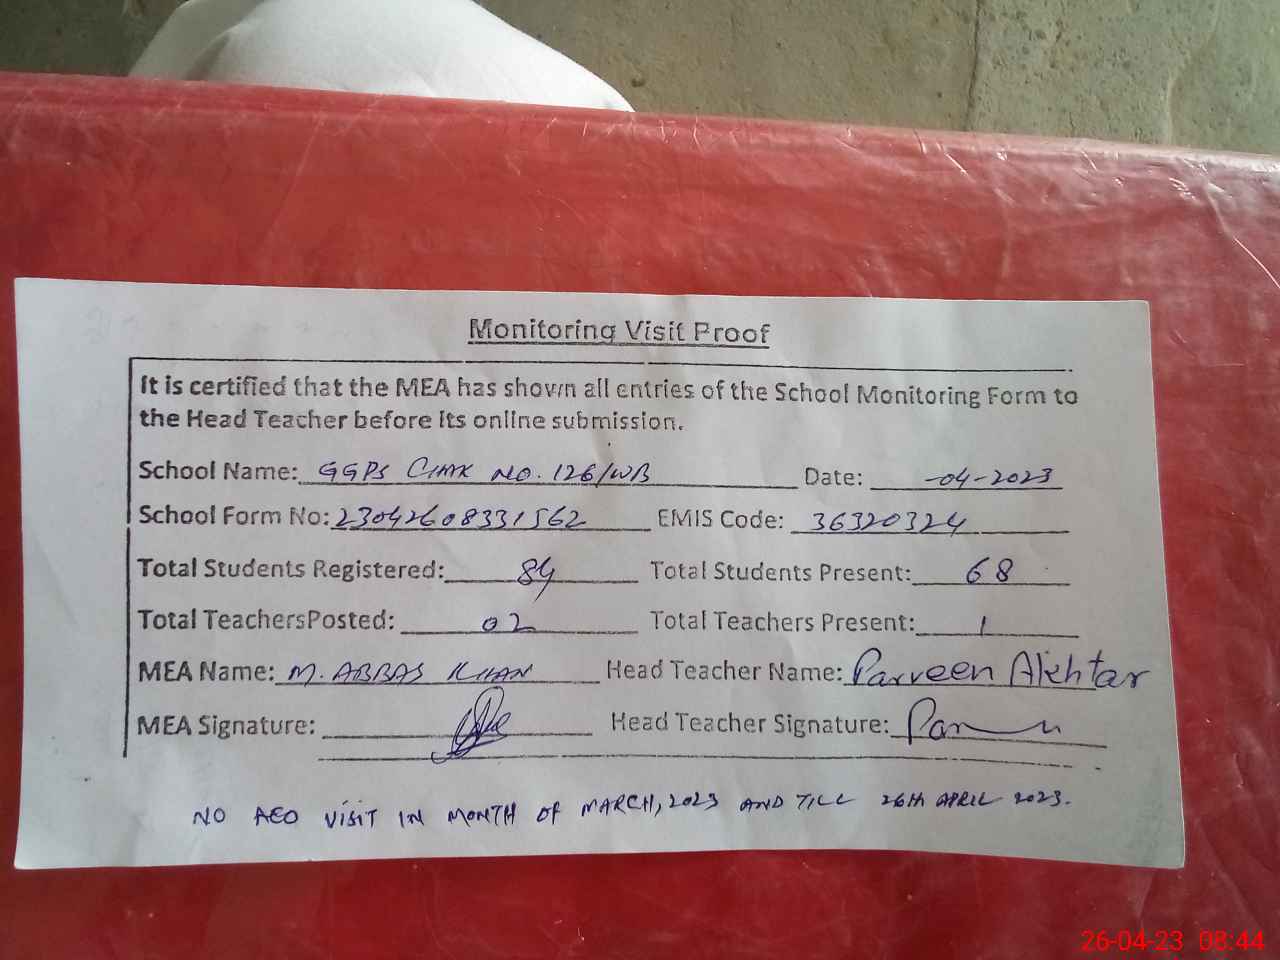 Monitoring Visit Proof
It is certified that the MEA has shown all entries of the School Monitoring Form to
the Head Teacher before its online submission.
School Name: GGPS CHAK NO. 126/WB Date: -04-2023
School Form No: 23042608331562 EMIS Code: 36320324
Total Students Registered: 84 Total Students Present: 68
Total TeachersPosted: 02 Total Teachers Present: 1
MEA Name: M. ABBAS KHAN Head Teacher Name: Parveen Akhtar
MEA Signature: Head Teacher Signature:
NO AEO VISIT IN MONTH OF MARCH, 2023 AND TILL 26TH APRIL 2023.
26-04-23 08:44